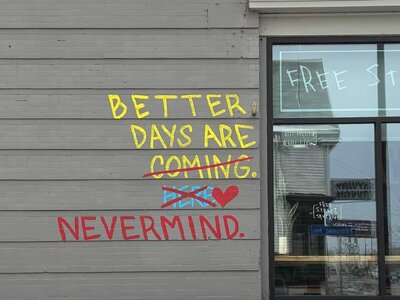 BETTER
DAYS ARE
COMING.
HERE
NEVERMIND.
FREE ST